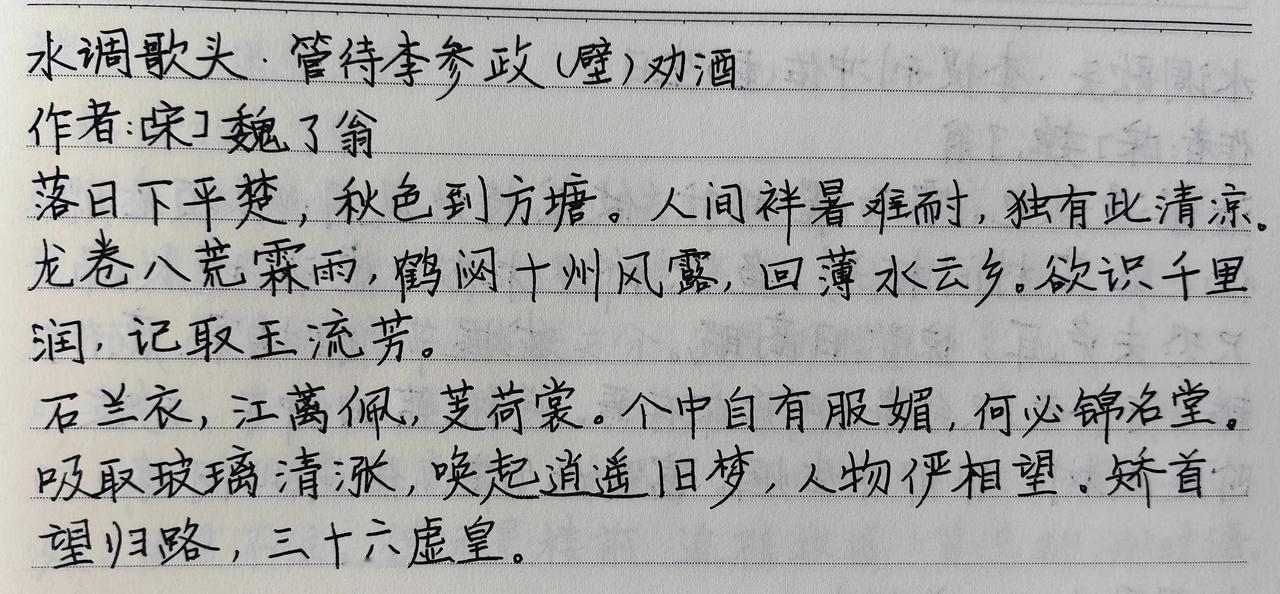 水调歌头·管待李参政(壁)劝酒
作者:[宋]魏了翁
落日下平楚,秋色到方塘。人间袢暑难耐,独有此清凉。
龙卷八荒霖雨,鹤闷十州风露,回薄水云乡。欲识千里
润,记取玉流芳。
石兰衣,江蓠佩,芰荷裳。个中自有服媚,何必锦名堂。
吸取玻璃清涨,唤起逍遥旧梦,人物俨相望。矫首
望归路,三十六虚皇。